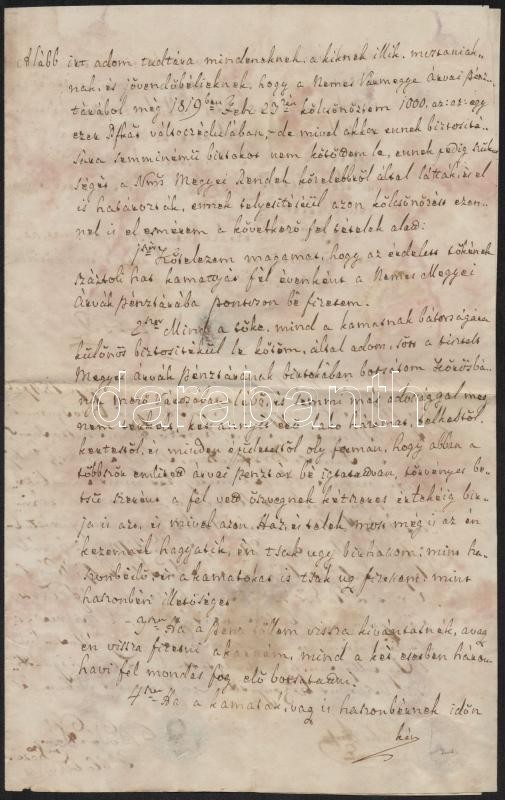 Alább irt adom tudtára mindeneknek, a kiknek illik, mostaniak-
nak, és jövendőbélieknek, hogy a Nemes Vármegye Árvai Pénz-
tárából még 1819ben Febr 23án kölcsönöztem 1000. az az: egy
ezer Rftkat váltoczédulában, de mivel akkor ennek biztositá-
sára semminémű birtokot nem kötöttem le, ennek pedig szük-
ségét, a Nms Megyei Rendek közelebbről által látták, és el
is határozták, ennek telyesitéséül azon kölcsönözést ezen-
nel is el esmerem a következő fel tételek alatt:
1ször Kötelezem magamat, hogy az érdeklett tőkének
száztoli hat kamattyát fél évenként a Nemes Megyei
Árvák Pénztárába pontoson bé fizetem.
2szor Mind a tőke, mind a kamatnak bátorságára
különös biztositékul le kötöm, által adom, sőt a tisztelt
Megyei Árvák Pénztárának birtokában botsátom
mező Várossában lévő, és semmi más adossággal meg
nem terhelt, két
kertestől, és minden épületestől oly formán, hogy abban a
többször emlitett árvai pénztár bé igtatódván, törvényes be-
tsű szerént a fel vett öszvegnek kétszeres értékéig bir-
ja is azt, és mivel azon Ház, és telek most meg is az én
kezemnél hagyatik, én tsak ugy birhatom, mint ha-
szonbérlő, és a kamatokat is tsak ug fizetem, mint
haszonbéri illetőséget
3szor Ha a pénz töllem vissza kivántatnék, avagy
én vissza fizetni akarnám, mind a két esetben három
havi fel mondás fog elő botsátatni.
4szer Ha a kamatok, vag is haszonbérnek időn
kév
darabanth